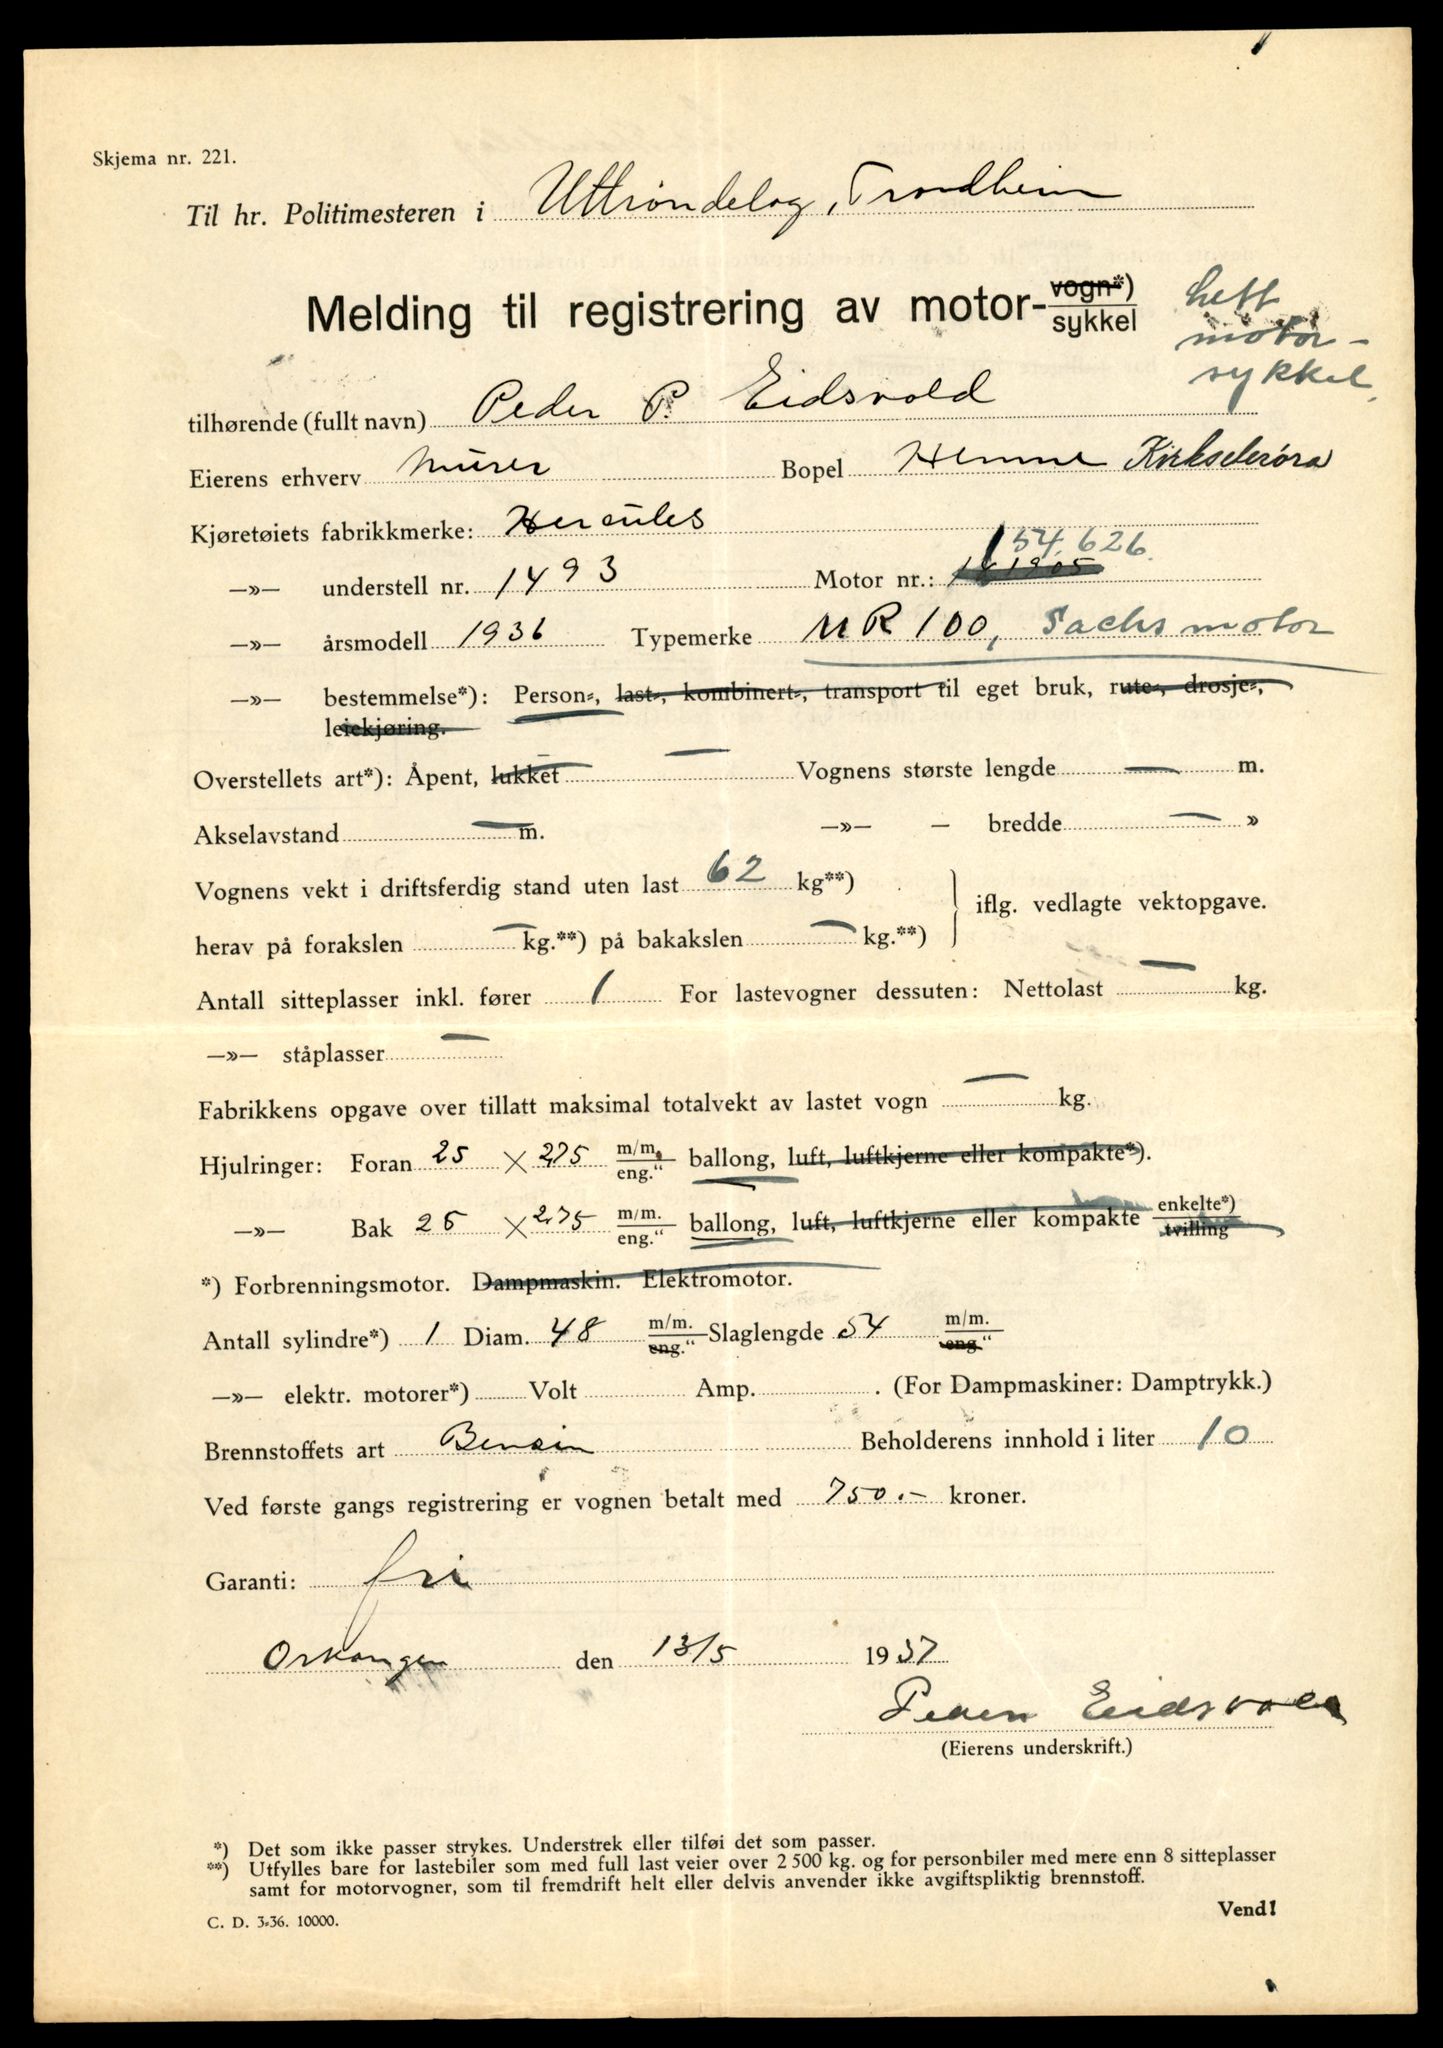 Skjema nr. 221.
Til hr. Politimesteren i Uttrøndelag, Trondheim
Melding til registrering av motor-vogn*)
sykkel
lett
motor-
sykkel.
tilhørende (fullt navn) Peder P. Eidsvold
Eierens erhverv murer Bopel Hemne Kirksæterøra
Kjøretøiets fabrikkmerke: Hercules
—»— understell nr. 1493 Motor nr.: 141905 154.626.
—»— årsmodell 1936 Typemerke MR 100, Sachs motor
—»— bestemmelse*): Person-, last-, kombinert-, transport til eget bruk, rute-, drosje-,
leiekjøring.
Overstellets art*): Åpent, lukket — Vognens største lengde — m.
Akselavstand — m. —»— – bredde — »
Vognens vekt i driftsferdig stand uten last 62 kg**)
herav på forakslen — kg.**) på bakakslen — kg.**)
iflg. vedlagte vektopgave.
Antall sitteplasser inkl. fører 1 For lastevogner dessuten: Nettolast — kg.
—»— ståplasser —
Fabrikkens opgave over tillatt maksimal totalvekt av lastet vogn — kg.
Hjulringer: Foran 25 × 2,75 m/m. eng.“ ballong, luft, luftkjerne eller kompakte*).
—»— Bak 25 × 2,75 m/m. eng.“ ballong, luft, luftkjerne eller kompakte enkelte*) tvilling
*) Forbrenningsmotor. Dampmaskin. Elektromotor.
Antall sylindre*) 1 Diam. 48 m/m. eng.“ Slaglengde 54 m/m. eng“
—»— elektr. motorer*) Volt Amp. . (For Dampmaskiner: Damptrykk.)
Brennstoffets art Bensin Beholderens innhold i liter 10
Ved første gangs registrering er vognen betalt med 750.- kroner.
Garanti: fri
Orkanger den 13/5 1937
Peder Eidsvold
(Eierens underskrift.)
*) Det som ikke passer strykes. Understrek eller tilføi det som passer.
**) Utfylles bare for lastebiler som med full last veier over 2 500 kg. og for personbiler med mere enn 8 sitteplasser
samt for motorvogner, som til fremdrift helt eller delvis anvender ikke avgiftspliktig brennstoff.
Vend!
C. D. 3-36. 10000.